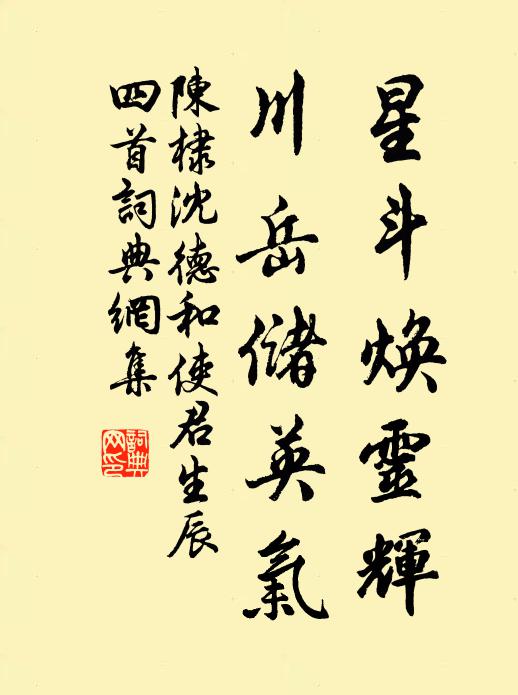 星斗焕靈輝
川岳儲英氣
陳棣沈德和使君生辰
四首詞典網集
詞典
网印